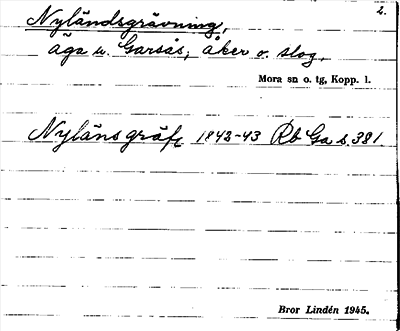 2.
Nyländsgrävning,
äga u. Garsås; åker o. slog.
Mora sn o. tg, Kopp. l.
Nyläns gräfe 1842-43 Rb Ga s. 381
Bror Lindén 1945.